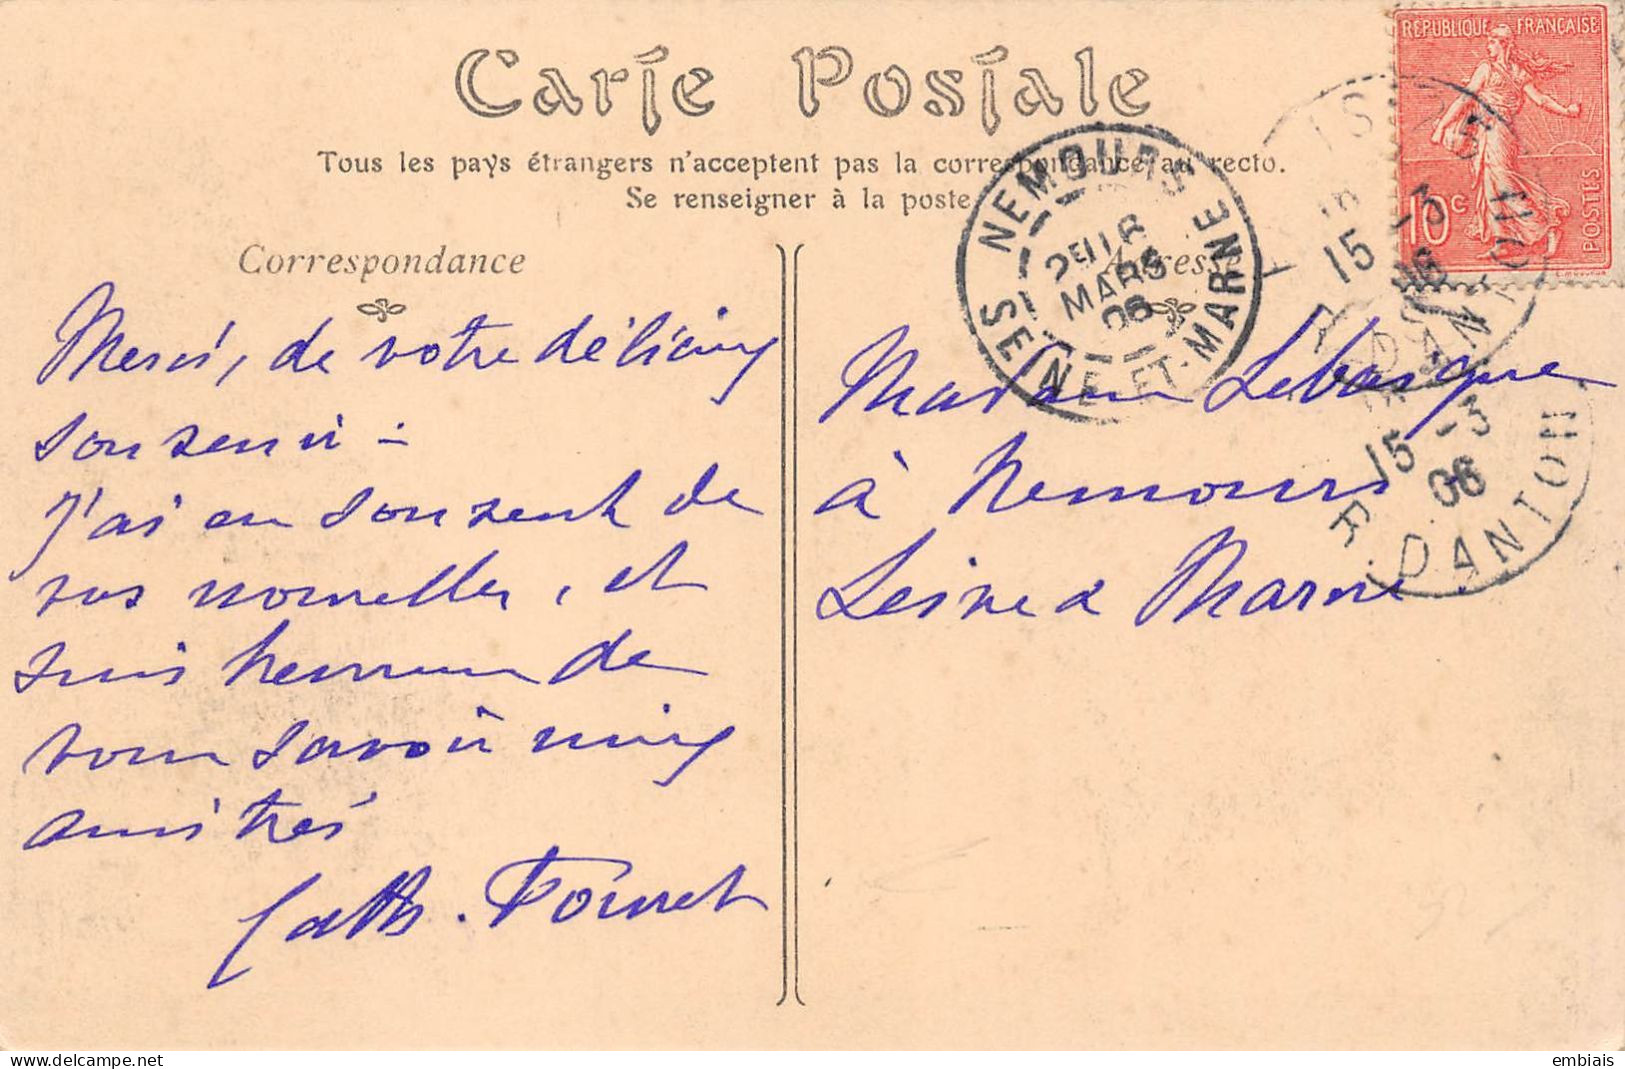 Carte Postale
Tous les pays étrangers n'acceptent pas la correspondance au recto.
Se renseigner à la poste
Correspondance
Adresse
RÉPUBLIQUE FRANÇAISE
10c
POSTES
NEMOURS
MARS
06
SEINE-ET-MARNE
15 -3
06
R. DANTON
15 -3
06
R. DANTON
Merci, de votre délicieux
souvenir -
J'ai eu souvent de
vos nouvelles, et
suis heureux de
vous savoir mieux
amitiés
Cath. Pouret
Madame Lebasque
à Nemours
Seine & Marne
embiais